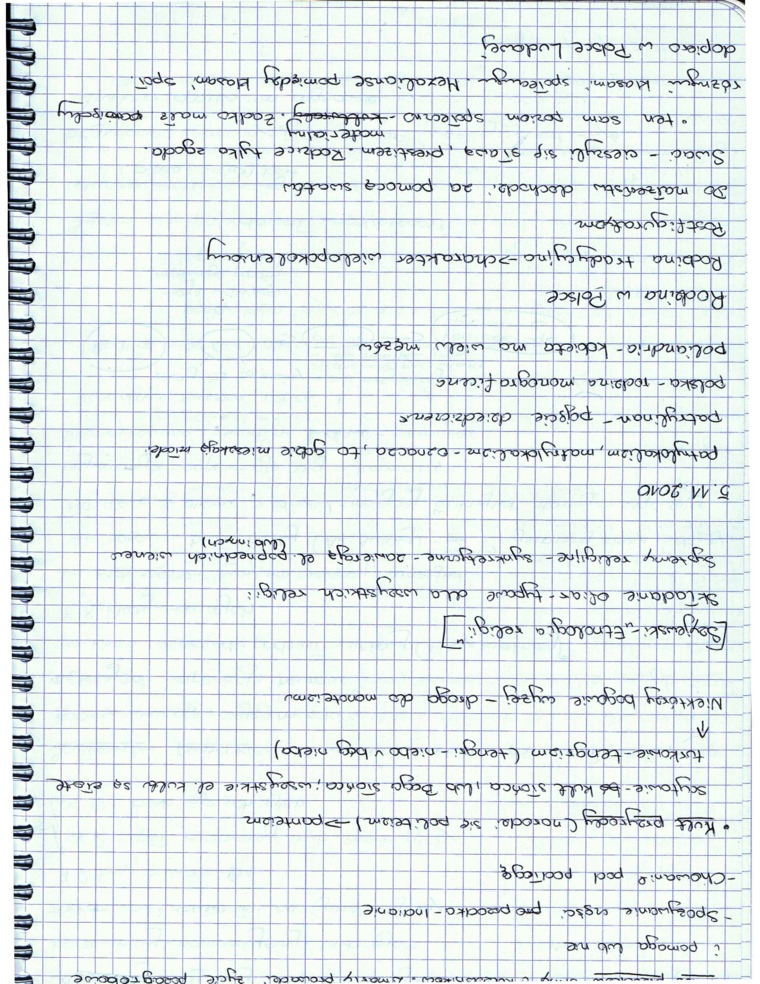 zmarły prowadzi życie pozagrobowe
i pomaga lub nie
- Spożywanie części przodka - Indianie
- Chowanie pod podłogę
• Kult przyrody (narodzi się politeizm) → panteizm
scytowie - kult słońca, lub Boga słońca, wszystkie el kultu są
turkowie - tengrizm (tengri - niebo v bóg nieba)
↓
Niektórzy bogowie wyżej - droga do monoteizmu
[Szyjewski - "Etnologia religii"]
Składanie ofiar - typowe dla wszystkich religii
Systemy religijne - synkretyczne - zawierają el poprednich wierzeń
(lub innych)
5.11.2010
patrylokalizm, matrylokalizm - oznacza, to gdzie mieszkają młodzi
patrylinan - pojęcie dziedziczenia
polska - rodzina monograficzna
poliandria - kobieta ma wielu mężów
Rodzina w Polsce
Rodzina tradycyjna → charakter wielopokoleniowy
Postfiguralizm
Do małżeństw dochodzi za pomocą swatów
Swaci - cieszyli się sławą, prestiżem. Rodzice tylko zgoda.
materialny
• ten sam poziom społeczno - kulturalny. Żadko małż pomiędzy
różnymi klasami społecznymi. Mezalianse pomiędzy klasami społ.
dopiero w Polsce Ludowej